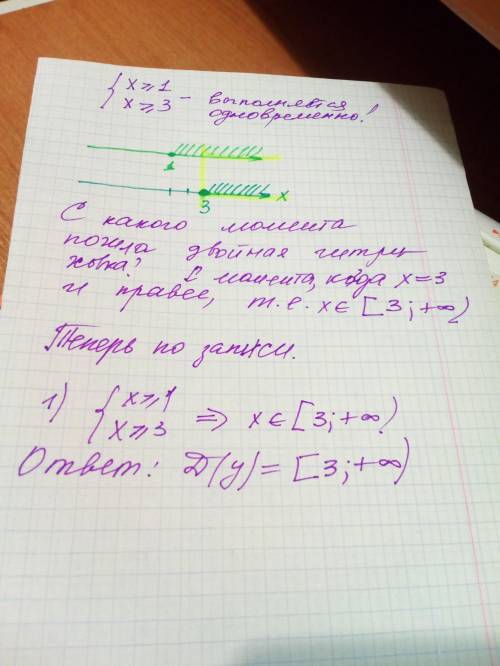 { x ⩾ 1
x ⩾ 3 – выполняется
одновременно!
1
3 x
С какого момента
пошла двойная штри
ховка? С момента, когда x = 3
и правее, т. е. x ∈ [3; +∞)
Теперь по записи.
1) { x ⩾ 1
x ⩾ 3 ⇒ x ∈ [3; +∞)
Ответ: D(y) = [3; +∞)